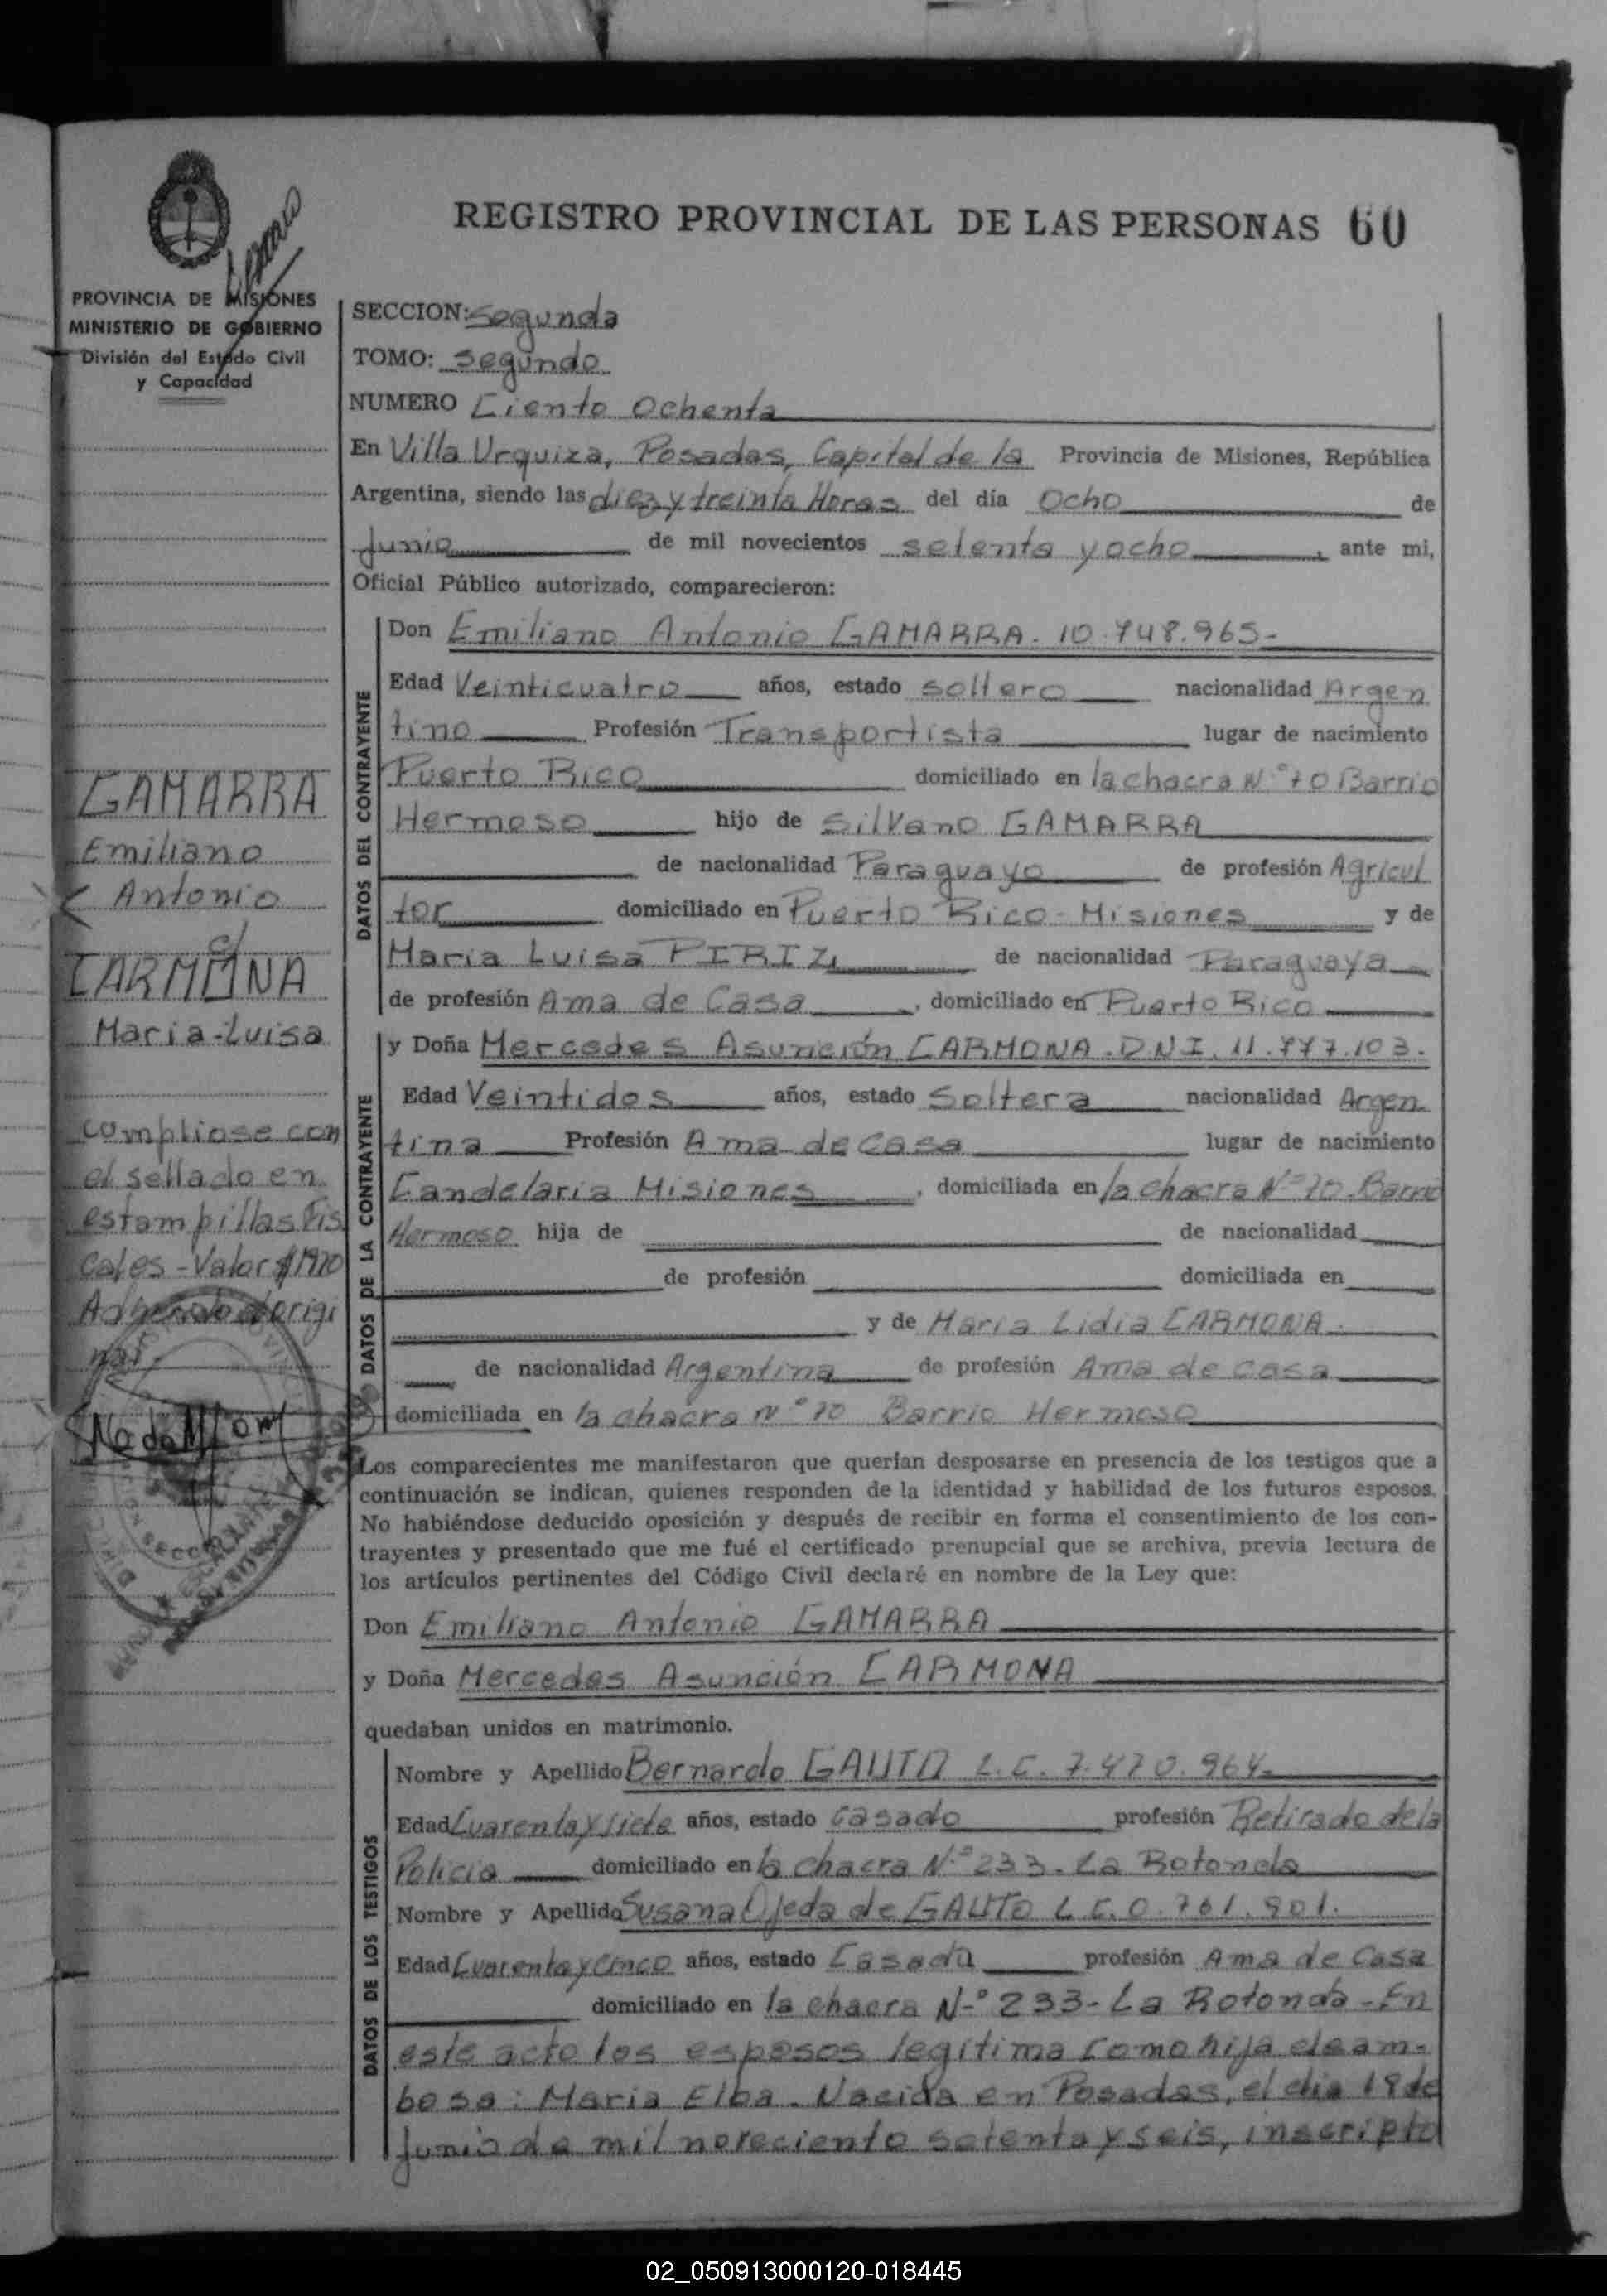 REGISTRO PROVINCIAL DE LAS PERSONAS 60
PROVINCIA DE MISIONES
MINISTERIO DE GOBIERNO
División del Estado Civil
y Capacidad
SECCION: Segunda
TOMO: Segundo
NUMERO Ciento Ochenta
En Villa Urquiza, Posadas, Capital de la Provincia de Misiones, República
Argentina, siendo las diez y treinta Horas del día Ocho de
Junio de mil novecientos setenta y ocho, ante mi,
Oficial Público autorizado, comparecieron:
DATOS DEL CONTRAYENTE
Don Emiliano Antonio GAMARRA. 10.748.965-
Edad Veinticuatro años, estado soltero nacionalidad Argen
tino Profesión Transportista lugar de nacimiento
Puerto Rico domiciliado en la chacra N° 70 Barrio
Hermoso hijo de Silvano GAMARRA
de nacionalidad Paraguayo de profesión Agricul
tor domiciliado en Puerto Rico - Misiones y de
Maria Luisa PIRIZ de nacionalidad Paraguaya
de profesión Ama de Casa, domiciliado en Puerto Rico
GAMARRA
Emiliano
Antonio
c/
CARMONA
Maria-Luisa
DATOS DE LA CONTRAYENTE
y Doña Mercedes Asunción CARMONA. D.N.I. 11.777.103.
Edad Veintidos años, estado Soltera nacionalidad Argen
tina Profesión Ama de Casa lugar de nacimiento
Candelaria Misiones, domiciliada en la chacra N° 70. Barrio
Hermoso hija de de nacionalidad
de profesión domiciliada en
y de Maria Lidia CARMONA
de nacionalidad Argentina de profesión Ama de casa
domiciliada en la chacra N° 70 Barrio Hermoso
cumpliose con
el sellado en
estampillas Fis
cales - Valor $ 1970
Adherido al origi
nal
Los comparecientes me manifestaron que querían desposarse en presencia de los testigos que a
continuación se indican, quienes responden de la identidad y habilidad de los futuros esposos.
No habiéndose deducido oposición y después de recibir en forma el consentimiento de los con-
trayentes y presentado que me fué el certificado prenupcial que se archiva, previa lectura de
los artículos pertinentes del Código Civil declaré en nombre de la Ley que:
Don Emiliano Antonio GAMARRA
y Doña Mercedes Asunción CARMONA
quedaban unidos en matrimonio.
DATOS DE LOS TESTIGOS
Nombre y Apellido Bernardo GAUTO L.C. 7.470.964-
Edad Cuarenta y Siete años, estado casado profesión Retirado de la
Policia domiciliado en la chacra N° 233. La Rotonda
Nombre y Apellido Susana Ojeda de GAUTO L.C. 0.761.901.
Edad Cuarenta y Cinco años, estado Casada profesión Ama de Casa
domiciliado en la chacra N° 233 - La Rotonda - En
este acto los esposos legitima como hija de am-
bos a: Maria Elba. Nacida en Posadas, el dia 18 de
Junio de mil noreciento setenta y seis, inscripto
02_050913000120-018445